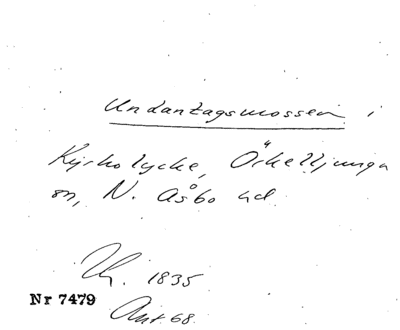 Undantagsmossen i
Kyrkolycke, Örkelljunga
sn, N. Åsbo hd.
1835
Nr 7479
Ant. 68